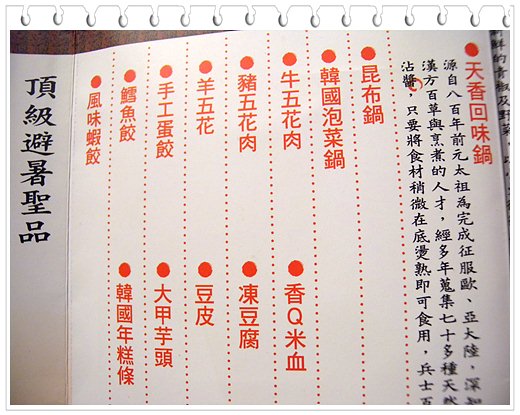 鮮的青椒及野菜
●天香回味鍋
源自八百年前元太祖為完成征服歐、亞大陸，深知
漢方百草與烹煮的人才，經多年蒐集七十多種天然
沾醬，只要將食材稍微在底燙熟即可食用，兵士百
●昆布鍋
●韓國泡菜鍋
●牛五花肉 ●香Q米血
●豬五花肉 ●凍豆腐
●羊五花 ●豆皮
●手工蛋餃 ●大甲芋頭
●鱈魚餃 ●韓國年糕條
●風味蝦餃
頂級避暑聖品